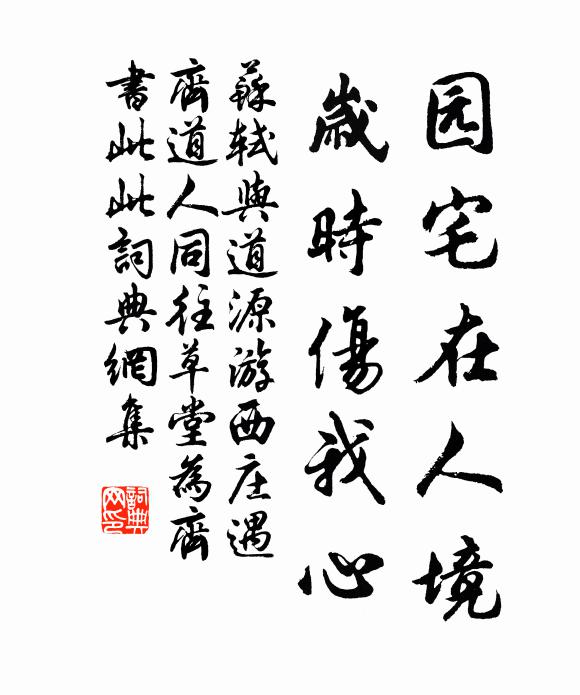 园宅在人境
歲時傷我心
蘇軾與道源游西庄遇
齊道人同往草堂為齊
書此此詞典網集
詞典
网印